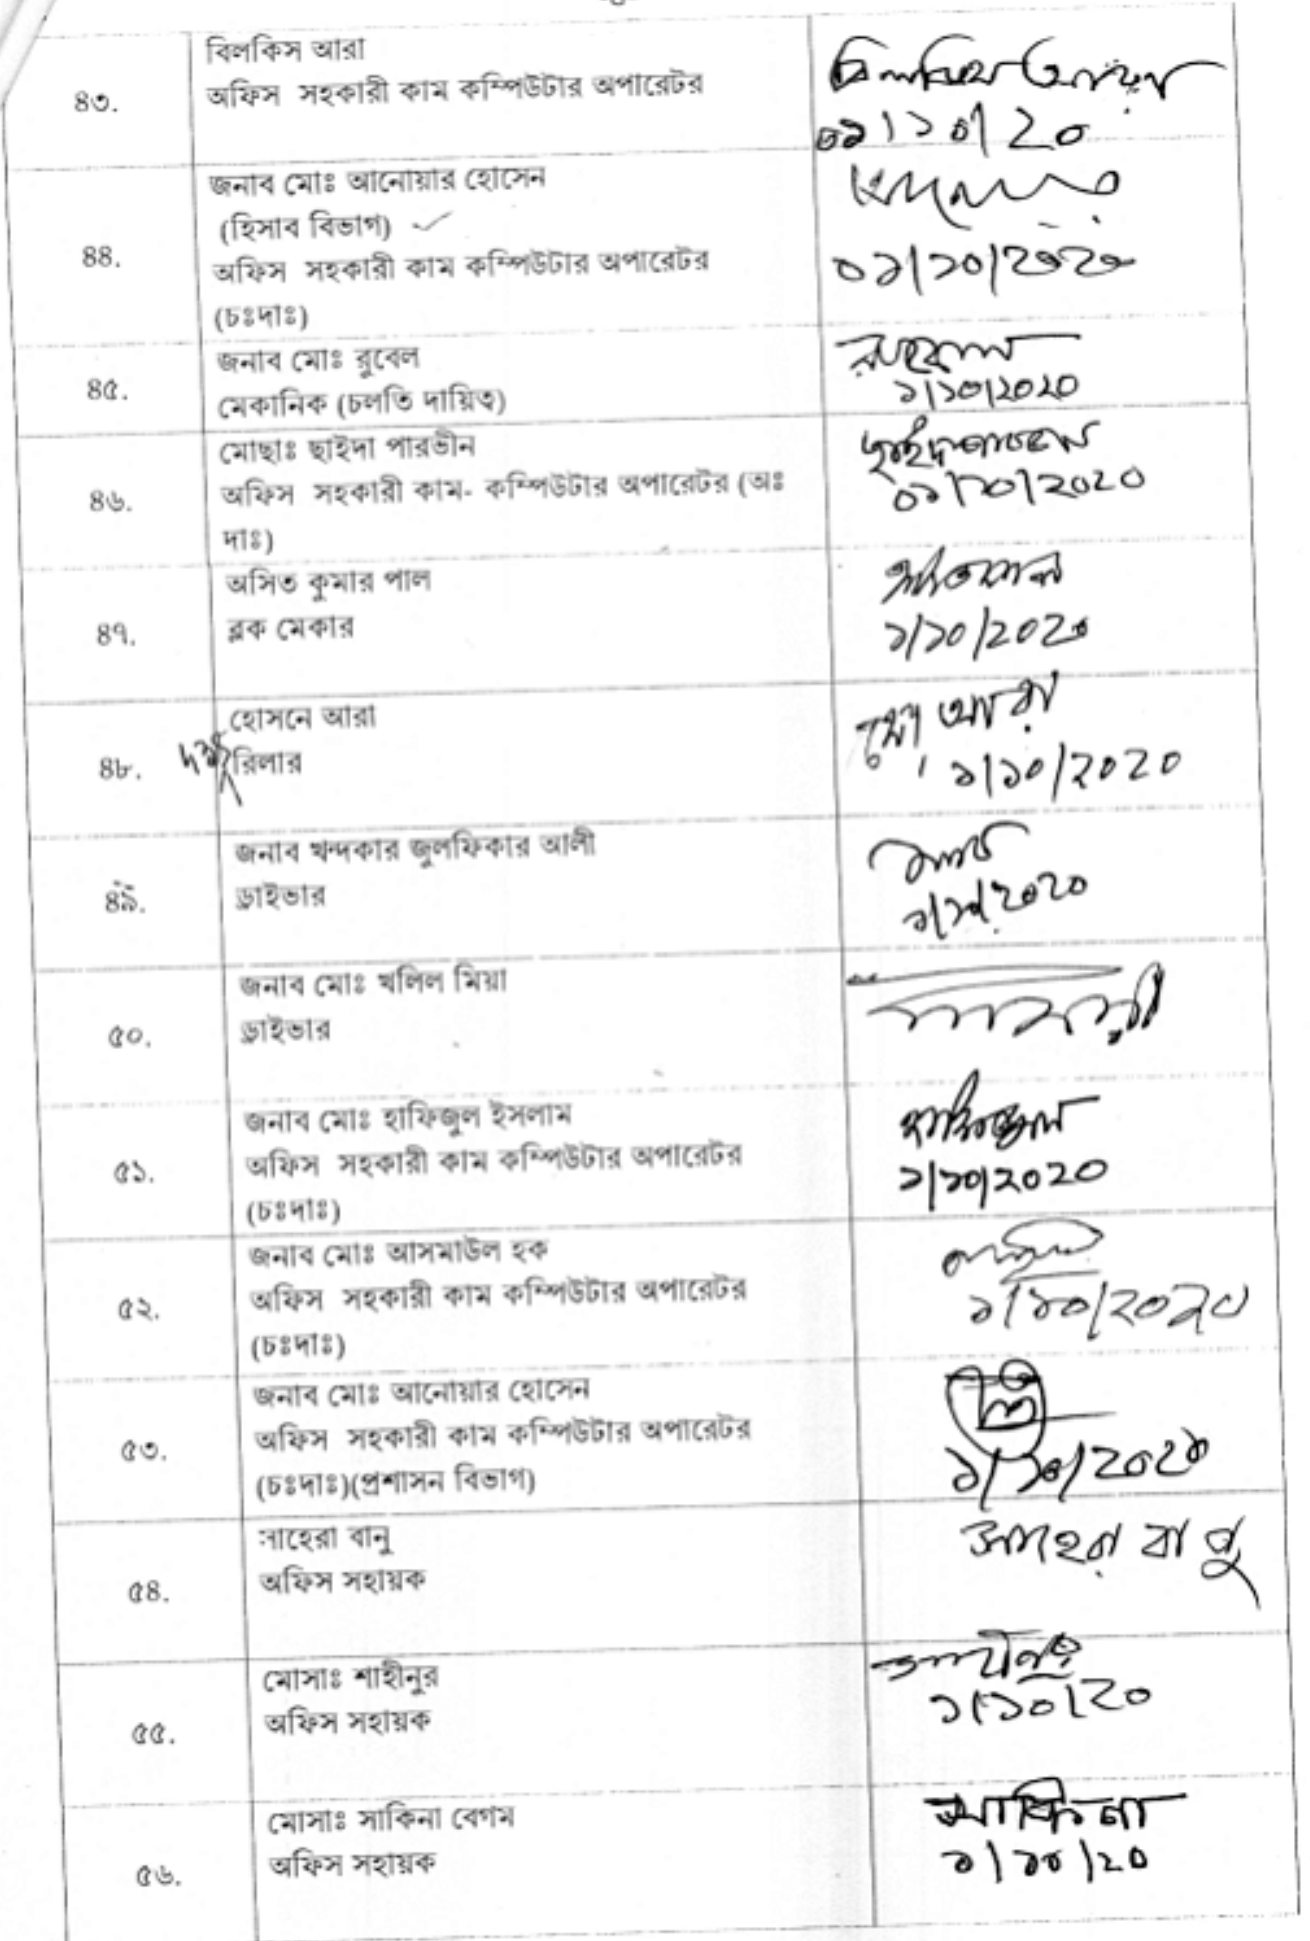 ৪৩.
বিলকিস আরা
অফিস সহকারী কাম কম্পিউটার অপারেটর
বিলকিস আরা
০১/১০/২০
৪৪.
জনাব মোঃ আনোয়ার হোসেন
(হিসাব বিভাগ)
অফিস সহকারী কাম কম্পিউটার অপারেটর
(চঃদাঃ)
০১/১০/২০২০
৪৫.
জনাব মোঃ রুবেল
মেকানিক (চলতি দায়িত্ব)
১/১০/২০২০
৪৬.
মোছাঃ ছাইদা পারভীন
অফিস সহকারী কাম- কম্পিউটার অপারেটর (অঃ
দাঃ)
০১/১০/২০২০
৪৭.
অসিত কুমার পাল
ব্লক মেকার
১/১০/২০২০
৪৮.
হোসনে আরা
রিলার
আরা
১/১০/২০২০
৪৯.
জনাব খন্দকার জুলফিকার আলী
ড্রাইভার
১/১০/২০২০
৫০.
জনাব মোঃ খলিল মিয়া
ড্রাইভার
৫১.
জনাব মোঃ হাফিজুল ইসলাম
অফিস সহকারী কাম কম্পিউটার অপারেটর
(চঃদাঃ)
১/১০/২০২০
৫২.
জনাব মোঃ আসমাউল হক
অফিস সহকারী কাম কম্পিউটার অপারেটর
(চঃদাঃ)
১/১০/২০২০
৫৩.
জনাব মোঃ আনোয়ার হোসেন
অফিস সহকারী কাম কম্পিউটার অপারেটর
(চঃদাঃ)(প্রশাসন বিভাগ)
১/১০/২০২০
৫৪.
সাহেরা বানু
অফিস সহায়ক
সাহেরা বানু
৫৫.
মোসাঃ শাহীনুর
অফিস সহায়ক
১/১০/২০
৫৬.
মোসাঃ সাকিনা বেগম
অফিস সহায়ক
সাকিনা
১/১০/২০